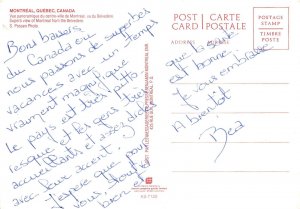 MONTRÉAL, QUÉBEC, CANADA
Vue panoramique du centre-ville de Montréal, vu du Belvédère
view of Montreal from the Belvedere
S. Passani Photo
Bons baisers
du Canada où
nous passons de
vacances avec un temps
vraiment magnifique
Le pays est très pitto
resque et les gens très
accueillants et assez drôles
avec leur accent.
J'espère que pour
vous, tout
bien
POST CARD
CARTE POSTALE
ADDRESS
ADRESSE
POSTAGE STAMP
TIMBRE POSTE
que la santé
est bonne
Je vous embrasse
A bientôt
Béa